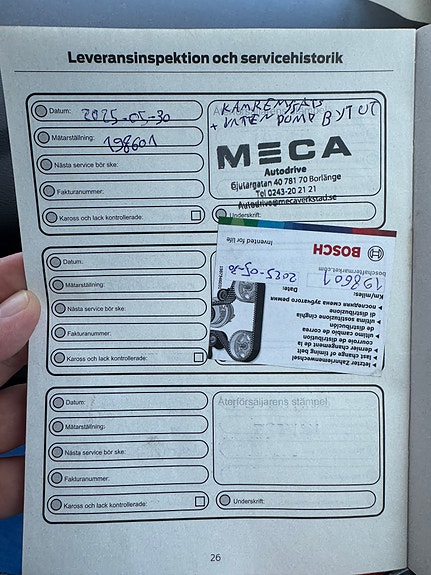 Leveransinspektion och servicehistorik
Datum: 2025-05-30
Mätarställning: 198601
Nästa service bör ske:
Fakturanummer:
Kaross och lack kontrollerade:
KAMREMSATS
+ VATTENPUMP BYTUT
MECA
Autodrive
Gjutargatan 40 781 70 Borlänge
Tel 0243-20 21 21
Autodrive@mecaverkstad.se
Underskrift:
Datum:
Mätarställning:
Nästa service bör ske:
Fakturanummer:
Kaross och lack kontrollerade:
letzter Zahnriemenwechsel
last change of timing belt
dernier changement de la
courroie de distribution
último cambio de correa de
distribución
ultima sostituzione cinghia
di distribuzione
последняя замена зубчатого ремня
Date
2025-05-30
Km/miles:
198601
boschaftermarket.com
BOSCH
Invented for life
Datum:
Mätarställning:
Nästa service bör ske:
Fakturanummer:
Kaross och lack kontrollerade:
Återförsäljarens stämpel
Underskrift:
26